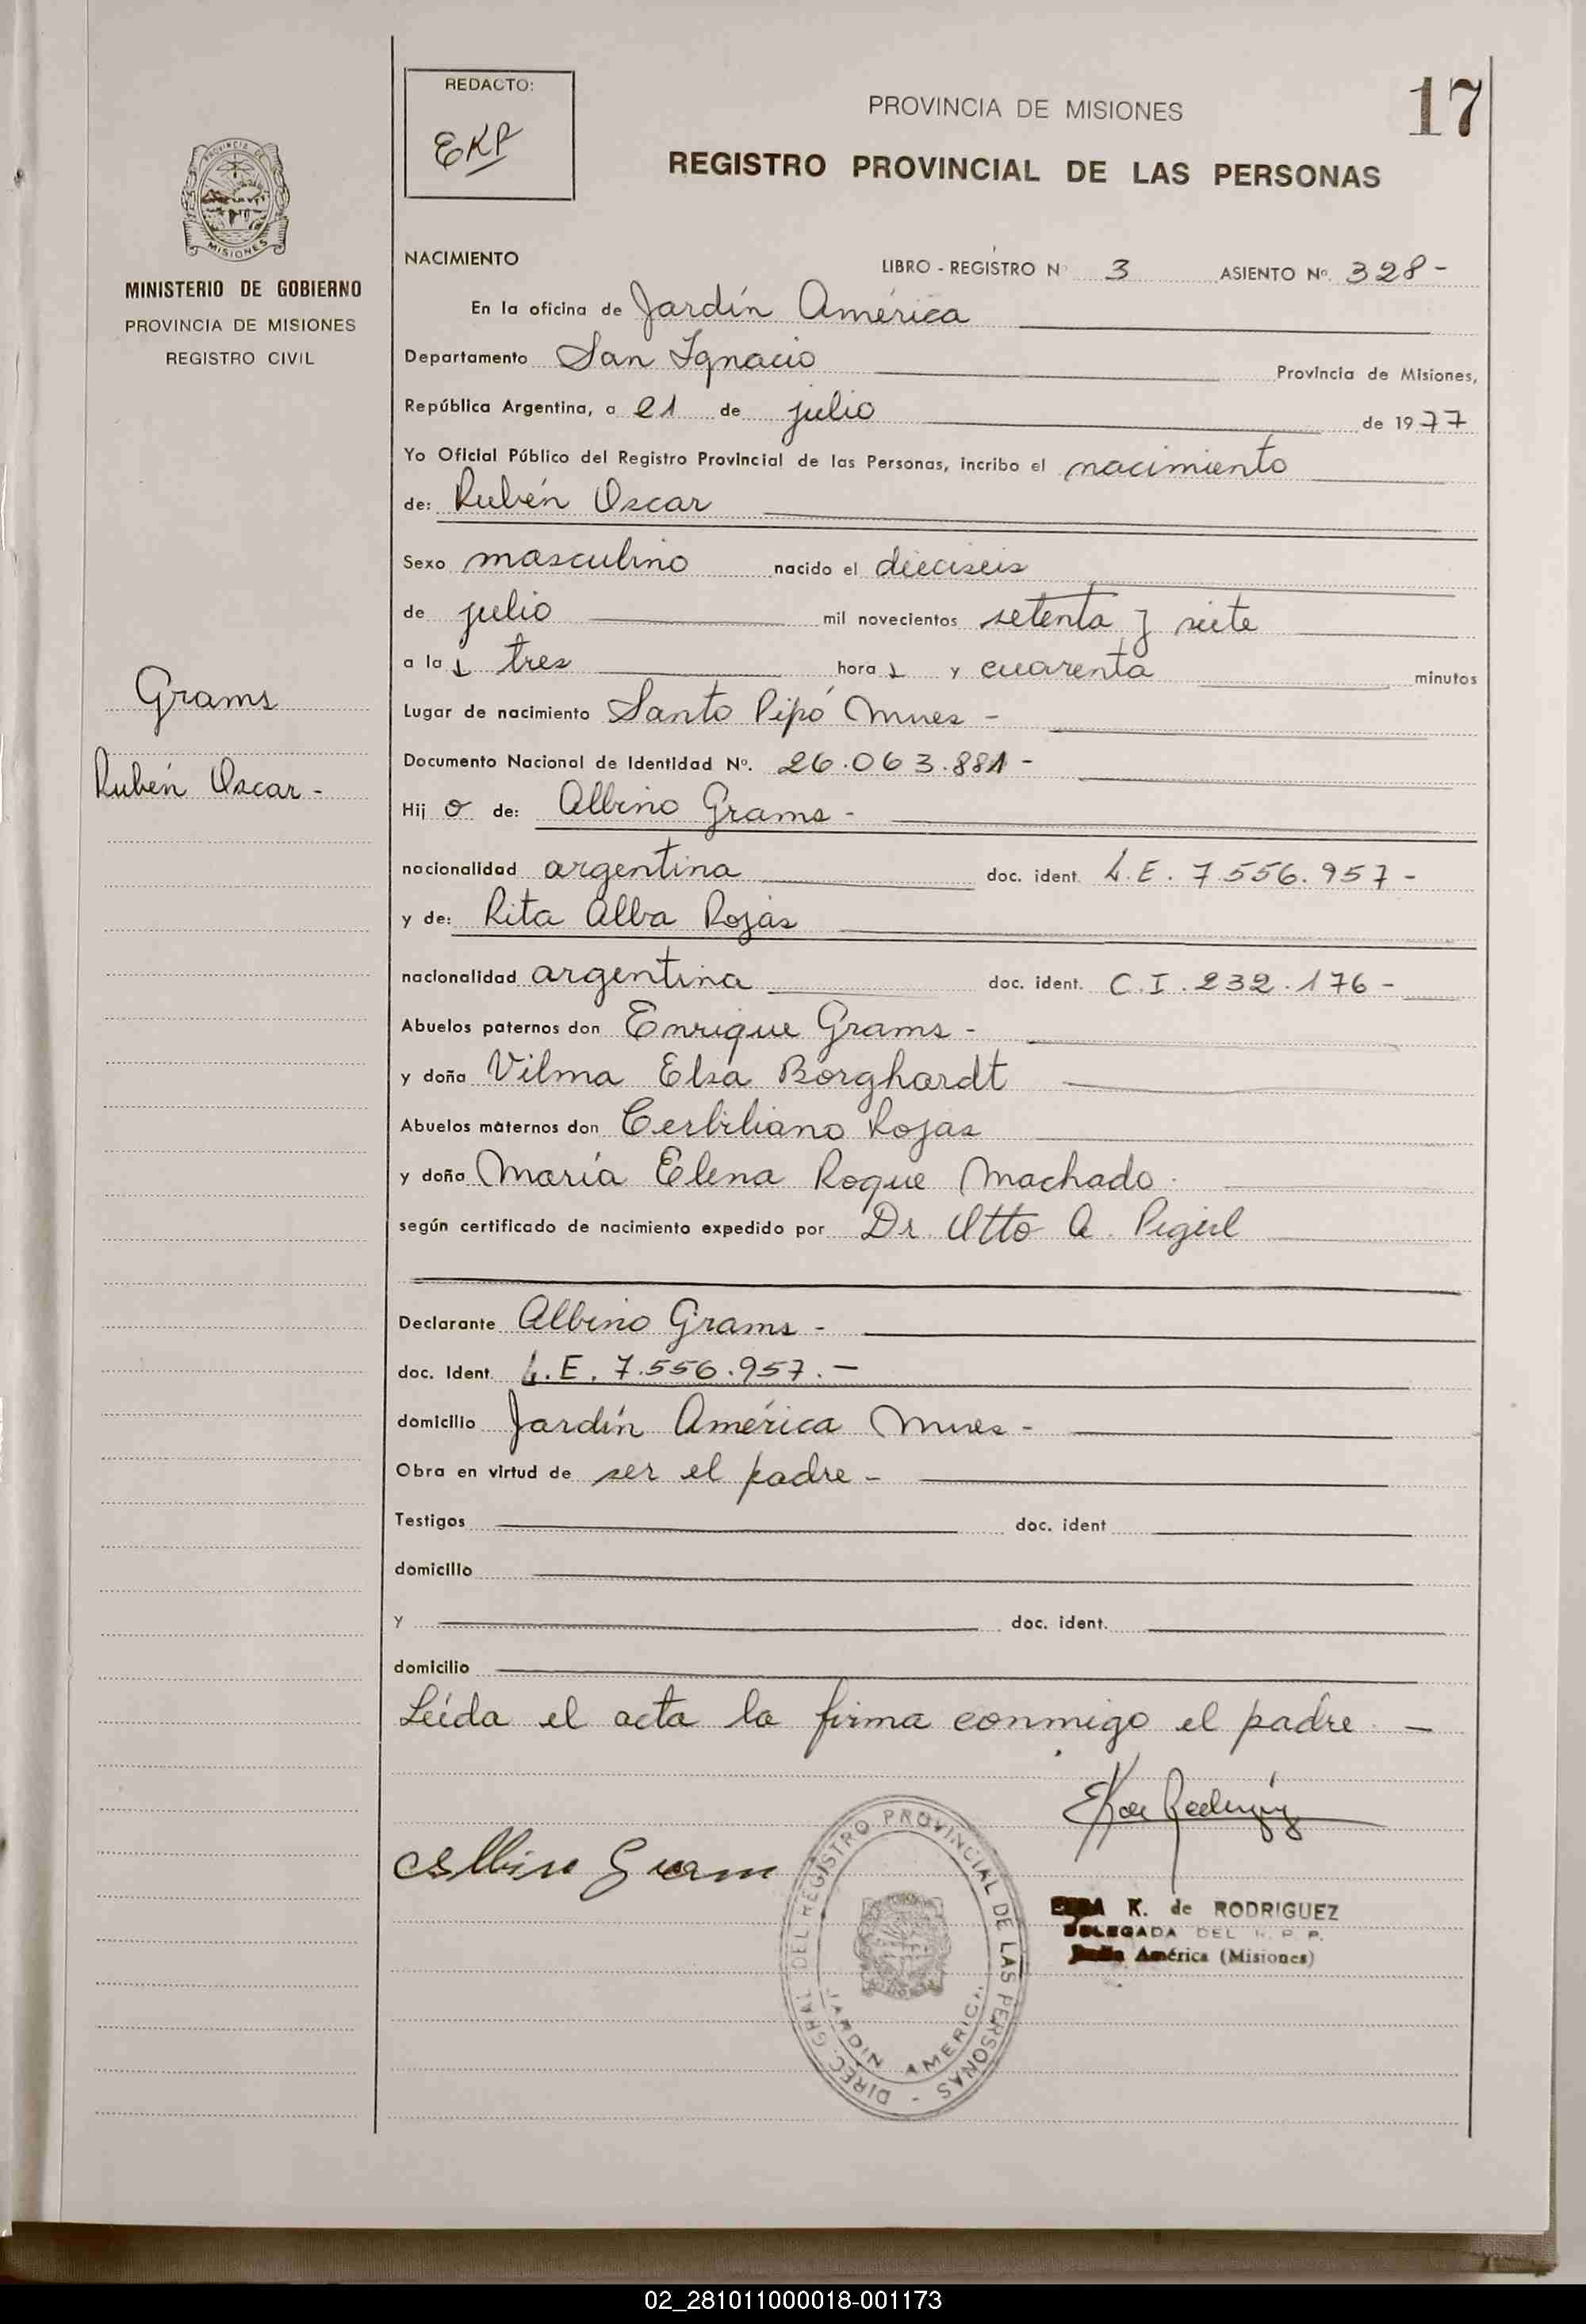 REDACTO:
EKR
PROVINCIA DE MISIONES
17
REGISTRO PROVINCIAL DE LAS PERSONAS
PROVINCIA DE
MISIONES
MINISTERIO DE GOBIERNO
PROVINCIA DE MISIONES
REGISTRO CIVIL
Grams
Rubén Oscar -
NACIMIENTO
LIBRO - REGISTRO Nº 3 ASIENTO Nº. 328 -
En la oficina de Jardín América
Departamento San Ignacio Provincia de Misiones,
República Argentina, a 21 de julio de 1977
Yo Oficial Público del Registro Provincial de las Personas, incribo el nacimiento
de: Rubén Oscar
Sexo masculino nacido el dieciseis
de julio mil novecientos setenta y siete
a las tres horas y cuarenta minutos
Lugar de nacimiento Santo Pipó Mnes -
Documento Nacional de Identidad Nº. 26.063.881 -
Hijo de: Albino Grams -
nacionalidad argentina doc. ident. L.E. 7.556.957 -
y de: Rita Alba Rojas
nacionalidad argentina doc. ident. C.I. 232.176 -
Abuelos paternos don Enrique Grams -
y doña Vilma Elsa Borghardt
Abuelos maternos don Cerbiliano Rojas
y doña María Elena Roque Machado
según certificado de nacimiento expedido por Dr. Otto A.
Declarante Albino Grams -
doc. Ident. L.E. 7.556.957. -
domicilio Jardín América Mnes -
Obra en virtud de ser el padre -
Testigos doc. ident
domicilio
y doc. ident.
domicilio
Leída el acta la firma conmigo el padre. -
Albino Gram
K. de RODRIGUEZ
DELEGADA DEL R. P. P.
América (Misiones)
DIREC. GRAL DEL REGISTRO PROVINCIAL DE LAS PERSONAS -
JARDIN AMERICA
02_281011000018-001173